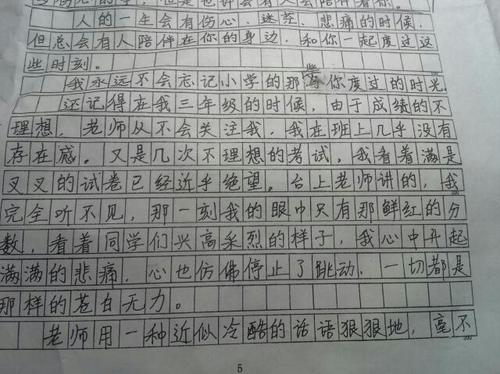 人的一生会有伤心、迷茫、悲痛的时候，
但总会有人陪伴在你的身边，和你一起度过这
些时刻。
我永远不会忘记小学的那与你度过的时光。
还记得在我三年级的时候，由于成绩的不
理想，老师从不会关注我，我在班上几乎没有
存在感。又是几次不理想的考试，我看着满是
叉叉的试卷已经近乎绝望。台上老师讲的，我
完全听不见，那一刻我的眼中只有那鲜红的分
数，看着同学们兴高采烈的样子，我心中升起
满满的悲痛，心也仿佛停止了跳动，一切都是
那样的苍白无力。
老师用一种近似冷酷的话语狠狠地，毫不
5